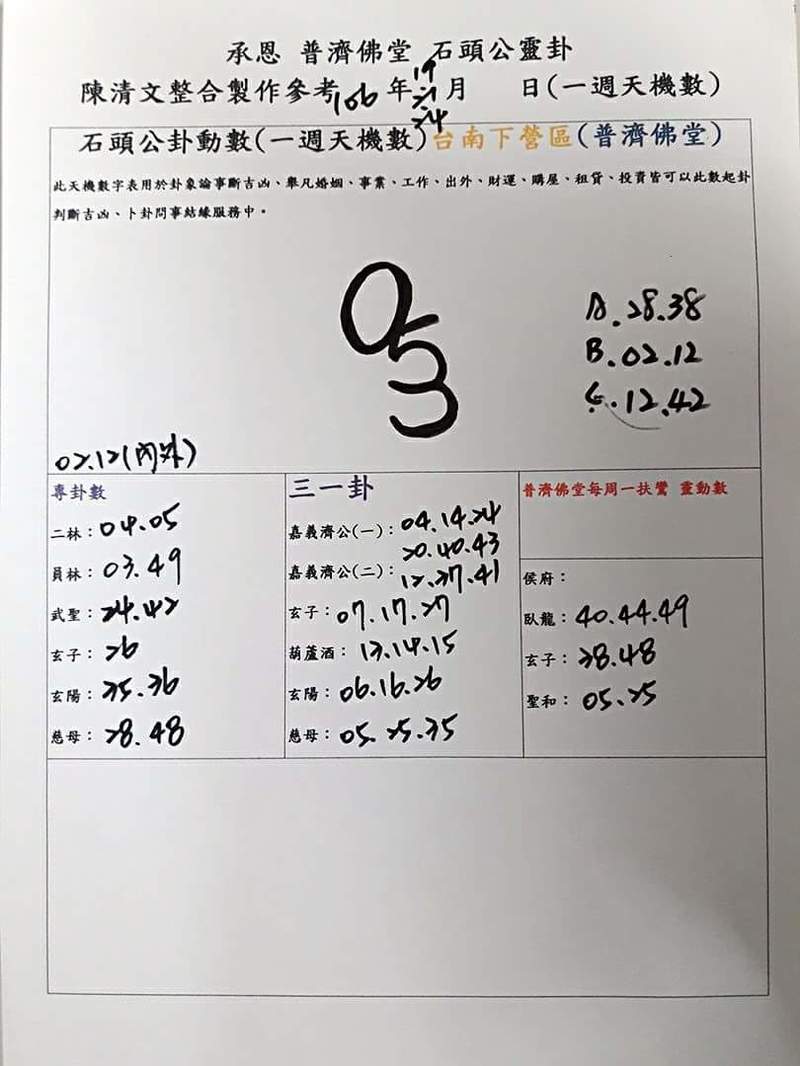 承恩 普濟佛堂 石頭公靈卦
陳清文整合製作參考106年 19 21 24 月 日(一週天機數)
石頭公卦動數(一週天機數)台南下營區(普濟佛堂)
此天機數字表用於卦象論事斷吉凶、舉凡婚姻、事業、工作、出外、財運、購屋、租貸、投資皆可以此數起卦
判斷吉凶、卜卦問事結緣服務中。
053
A.28.38
B.02.12
C.12.42
02.12(內外)
專卦數
二林：04.05
員林：03.49
武聖：24.42
玄子：26
玄陽：35.36
慈母：38.48
三一卦
嘉義濟公(一)：04.14.24
20.40.43
嘉義濟公(二)：12.37.41
玄子：07.17.27
葫蘆酒：13.14.15
玄陽：06.16.26
慈母：05.25.35
普濟佛堂每周一扶鸞 靈動數
侯府：
臥龍：40.44.49
玄子：38.48
聖和：05.25